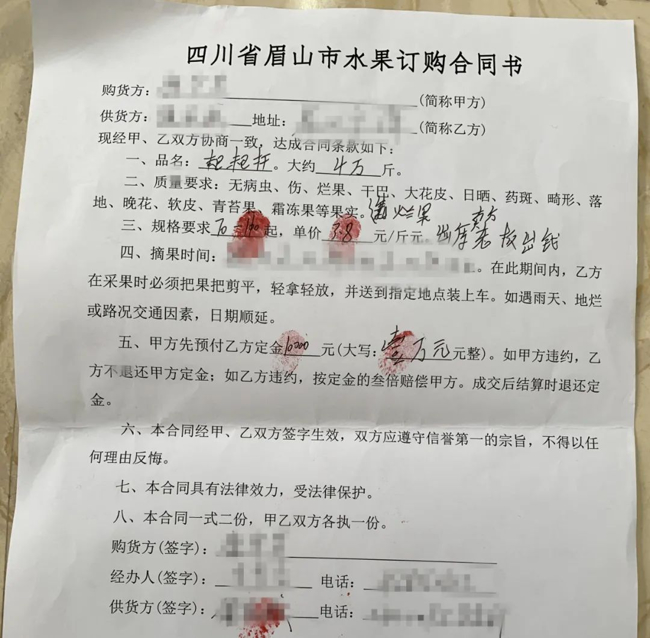 四川省眉山市水果订购合同书
购货方： (简称甲方)
供货方： 地址： (简称乙方)
现经甲、乙双方协商一致，达成合同条款如下：
一、品名：粑粑柑。大约4万斤。
二、质量要求：无病虫、伤、烂果、干巴、大花皮、日晒、药斑、畸形、落
地、晚花、软皮、青苔果、霜冻果等果实。
三、规格要求 起，单价3.8元/斤元
四、摘果时间： 。在此期间内，乙方
在采果时必须把果把剪平，轻拿轻放，并送到指定地点装上车。如遇雨天、地烂
或路况交通因素，日期顺延。
五、甲方先预付乙方定金10000元(大写：壹万元元整)。如甲方违约，乙
方不退还甲方定金；如乙方违约，按定金的叁倍赔偿甲方。成交后结算时退还定
金。
六、本合同经甲、乙双方签字生效，双方应遵守信誉第一的宗旨，不得以任
何理由反悔。
七、本合同具有法律效力，受法律保护。
八、本合同一式二份，甲乙双方各执一份。
购货方(签字)：
经办人(签字)： 电话：
供货方(签字)： 电话：